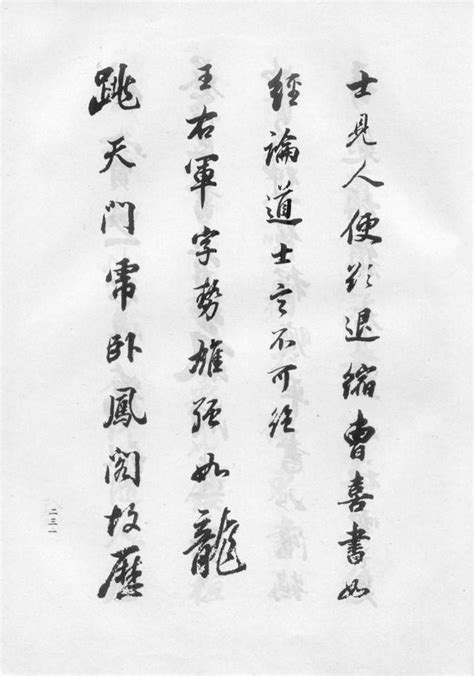 士見人便欲退縮曹喜書如
經論道士言不可絕
王右軍字勢雄強如龍
跳天門虎卧鳳閣故歷
二三一